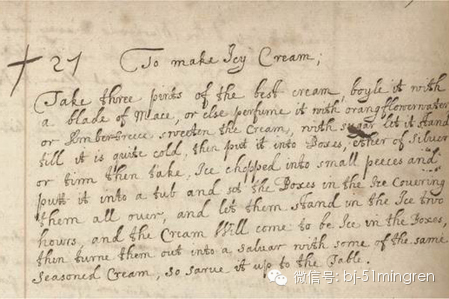 + 27 To make Icy Cream;
Take three pints of the best cream, boyle it with
a blade of Mace, or else perfume it with orangflowerwater
or Ambergreece sweeten the Cream, with sugar let it stand
till it is quite cold, then put it into Boxes, ether of Silver
or tinn then take, Ice chopped into small peeces and
putt it into a tub and set the Boxes in the Ice Couering
them all ouer, and let them stand in the Ice two
hours, and the Cream Will come to be Ice in the Boxes,
then turne them out into a saluar with some of the same
Seasoned Cream, so sarue it up to the Table.
微信号: bj-51mingren